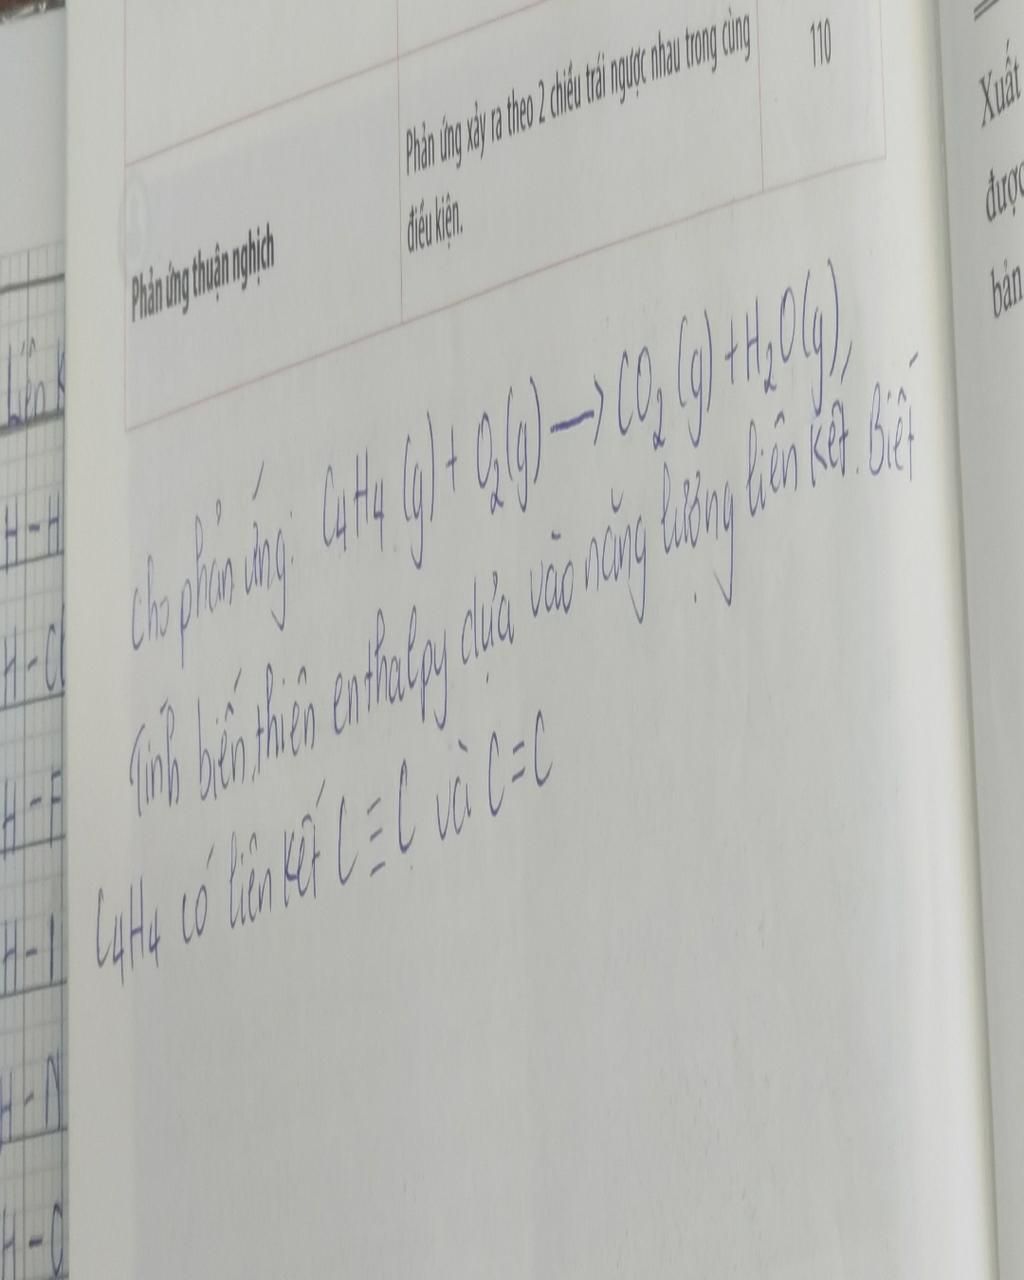 Phản ứng thuận nghịch
Phản ứng xảy ra theo 2 chiều trái ngược nhau trong cùng
điều kiện.
110
Cho phản ứng: C₄H₄ (g) + O₂(g) → CO₂ (g) + H₂O(g),
Tính biến thiên enthalpy dựa vào năng lượng liên kết. Biết
C₄H₄ có liên kết C≡C và C=C
Liên k
H-H
H-Cl
H-F
H-I
H-N
H-O
Xuất
được
bản